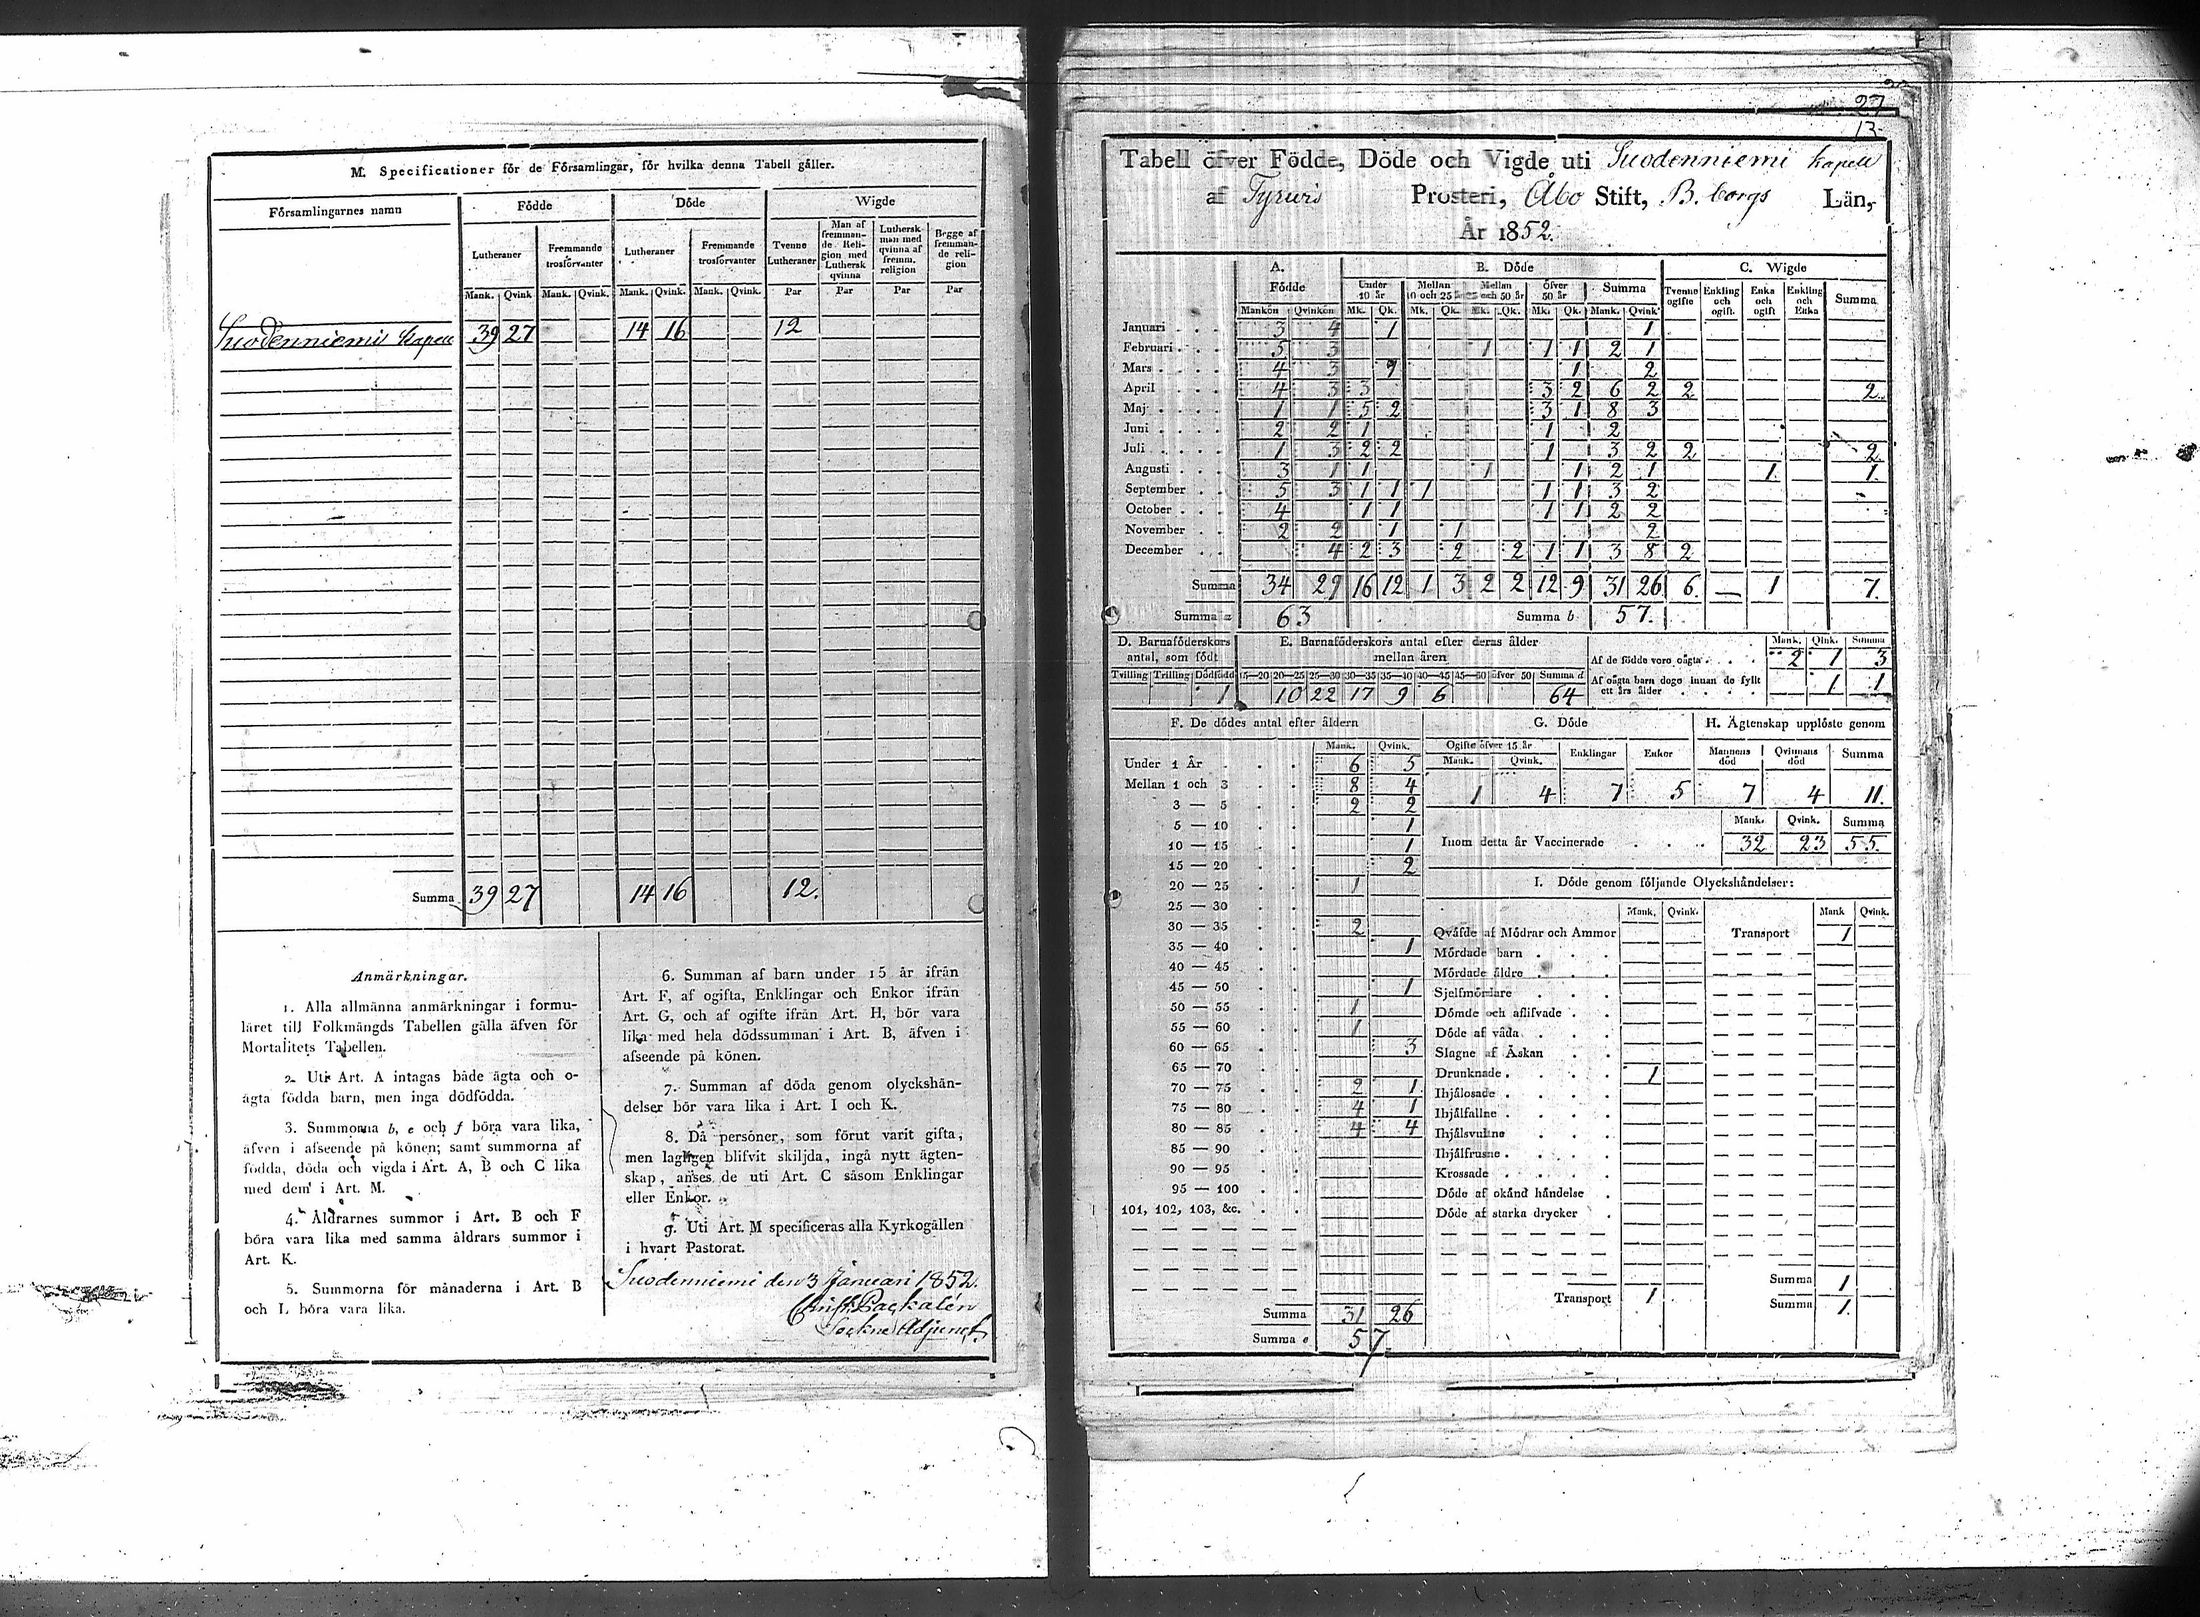 M. Specificationer för de Församlingar, för hvilka denna Tabell gäller.
Församlingarnes namn | Födde | Döde | Wigde
Lutheraner | Fremmande trosförvanter | Lutheraner | Fremmande trosförvanter | Tvenne Lutheraner | Man af fremmande Religion med Luthersk qvinna | Luthersk man med qvinna af fremm. religion | Begge af fremmande religion
Mank. | Qvink | Mank. | Qvink. | Mank. | Qvink. | Mank. | Qvink. | Par | Par | Par | Par
Suodenniemi Kapell | 39 | 27 | 14 | 16 | 12
Summa | 39 | 27 | 14 | 16 | 12.
Anmärkningar.
1. Alla allmänna anmärkningar i formu-
läret till Folkmängds Tabellen gälla äfven för
Mortalitets Tabellen.
2. Uti Art. A intagas både ägta och o-
ägta födda barn, men inga dödfödda.
3. Summorna b, e och f böra vara lika,
äfven i afseende på könen; samt summorna af
födda, döda och vigda i Art. A, B och C lika
med dem i Art. M.
4. Åldrarnes summor i Art. B och F
böra vara lika med samma åldrars summor i
Art. K.
5. Summorna för månaderna i Art. B
och L böra vara lika.
6. Summan af barn under 15 år ifrån
Art. F, af ogifta, Enklingar och Enkor ifrån
Art. G, och af ogifte ifrån Art. H, bör vara
lika med hela dödssumman i Art. B, äfven i
afseende på könen.
7. Summan af döda genom olyckshän-
delser bör vara lika i Art. I och K.
8. Då personer, som förut varit gifta,
men lagligen blifvit skiljda, ingå nytt ägten-
skap, anses de uti Art. C såsom Enklingar
eller Enkor.
9. Uti Art. M specificeras alla Kyrkogällen
i hvart Pastorat.
Suodenniemi den 3 Januari 1852.
Sockne Adjunct.
27
13
Tabell öfver Födde, Döde och Vigde uti Suodenniemi kapell
af Tyrvis Prosteri, Åbo Stift, B. borgs Län,
År 1852.
A. Födde | B. Döde | C. Wigde
Under 10 år | Mellan 10 och 25 år | Mellan 25 och 50 år | Öfver 50 år | Summa | Tvenne ogifte | Enkling och ogift. | Enka och ogift | Enkling och Enka | Summa
Mankön | Qvinkön | Mk. | Qk. | Mk. | Qk. | Mk. | Qk. | Mk. | Qk. | Mank. | Qvink.
Januari | 3 | 4 | 1 | 1
Februari | 5 | 3 | 1 | 1 | 1 | 2 | 1
Mars | 4 | 3 | 1 | 2
April | 4 | 3 | 3 | 3 | 2 | 6 | 2 | 2 | 2
Maj | 1 | 1 | 5 | 2 | 3 | 1 | 8 | 3
Juni | 2 | 2 | 1 | 1 | 2
Juli | 1 | 3 | 2 | 2 | 1 | 3 | 2 | 2 | 2
Augusti | 3 | 1 | 1 | 1 | 1 | 2 | 1 | 1. | 1.
September | 5 | 3 | 1 | 1 | 1 | 1 | 1 | 3 | 2
October | 4 | 1 | 1 | 1 | 1 | 2 | 2
November | 2 | 2 | 1 | 1 | 2
December | 4 | 2 | 3 | 2 | 2 | 1 | 1 | 3 | 8 | 2
Summa | 34 | 29 | 16 | 12 | 1 | 3 | 2 | 2 | 12 | 9 | 31 | 26 | 6. | — | 1 | 7.
Summa a | 63 | Summa b | 57.
D. Barnaföderskors antal, som födt
Tvilling | Trilling | Dödfödd
1
E. Barnaföderskors antal efter deras ålder mellan åren
15—20 | 20—25 | 25—30 | 30—35 | 35—40 | 40—45 | 45—50 | öfver 50 | Summa d
10 | 22 | 17 | 9 | 6 | 64
Mank. | Qink. | Summa
Af de födde voro oägta | 2 | 1 | 3
Af oägta barn dogo innan de fyllt ett års ålder | 1 | 1
F. De dödes antal efter åldern
Mank. | Qvink.
Under 1 År | 6 | 5
Mellan 1 och 3 | 8 | 4
3 — 5 | 2 | 2
5 — 10 | 1
10 — 15 | 1
15 — 20 | 2
20 — 25 | 1
25 — 30
30 — 35 | 2
35 — 40 | 1
40 — 45
45 — 50 | 1
50 — 55 | 1
55 — 60 | 1
60 — 65 | 3
65 — 70
70 — 75 | 2 | 1
75 — 80 | 4 | 1
80 — 85 | 4 | 4
85 — 90
90 — 95
95 — 100
101, 102, 103, &c.
Summa | 31 | 26
Summa e | 57
G. Döde
Ogifte öfver 15 år | Enklingar | Enkor
Mank. | Qvink.
1 | 4 | 7 | 5
H. Ägtenskap upplöste genom
Mannens död | Qvinnans död | Summa
7 | 4 | 11.
Mank. | Qvink. | Summa
Inom detta år Vaccinerade | 32 | 23 | 55.
I. Döde genom följande Olyckshändelser:
Mank. | Qvink. | Mank | Qvink.
Qväfde af Mödrar och Ammor | Transport | 1
Mördade barn
Mördade äldre
Sjelfmördare
Dömde och aflifvade
Döde af våda
Slagne af Åskan
Drunknade | 1
Ihjälosade
Ihjälfallne
Ihjälsvultne
Ihjälfrusne
Krossade
Döde af okänd händelse
Döde af starka drycker
Summa | 1
Transport | 1 | Summa | 1.